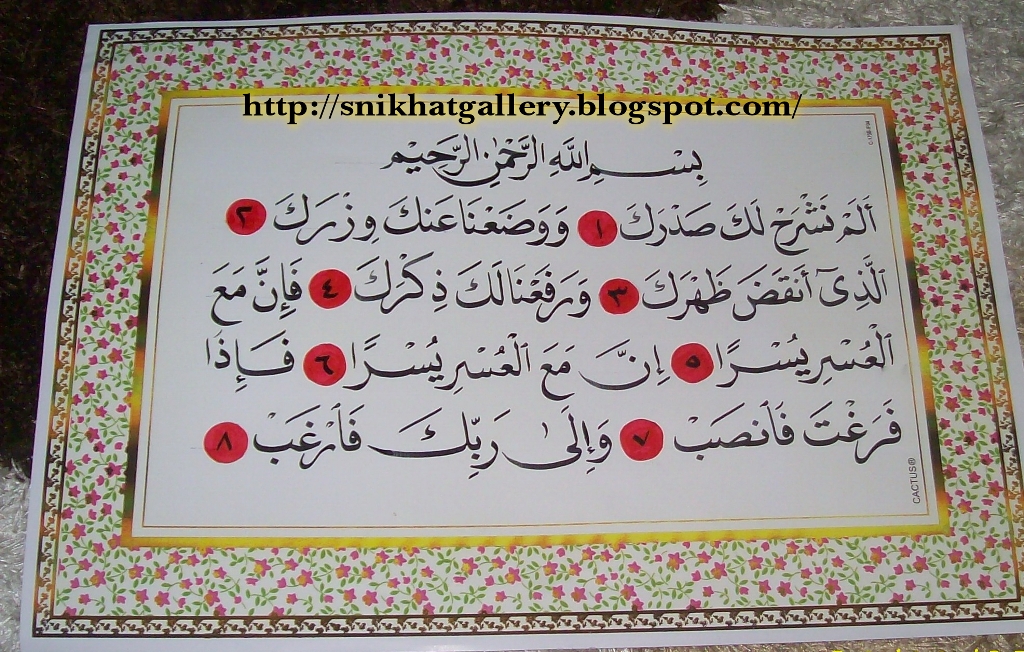 http://snikhatgallery.blogspot.com/
بِسْمِ اللَّهِ الرَّحْمَٰنِ الرَّحِيْمِ
أَلَمْ نَشْرَحْ لَكَ صَدْرَكَ ١ وَوَضَعْنَا عَنكَ وِزْرَكَ ٢
ٱلَّذِىٓ أَنقَضَ ظَهْرَكَ ٣ وَرَفَعْنَا لَكَ ذِكْرَكَ ٤ فَإِنَّ مَعَ
ٱلْعُسْرِ يُسْرًا ٥ إِنَّ مَعَ ٱلْعُسْرِ يُسْرًا ٦ فَإِذَا
فَرَغْتَ فَٱنصَبْ ٧ وَإِلَىٰ رَبِّكَ فَٱرْغَبْ ٨
CACTUS®